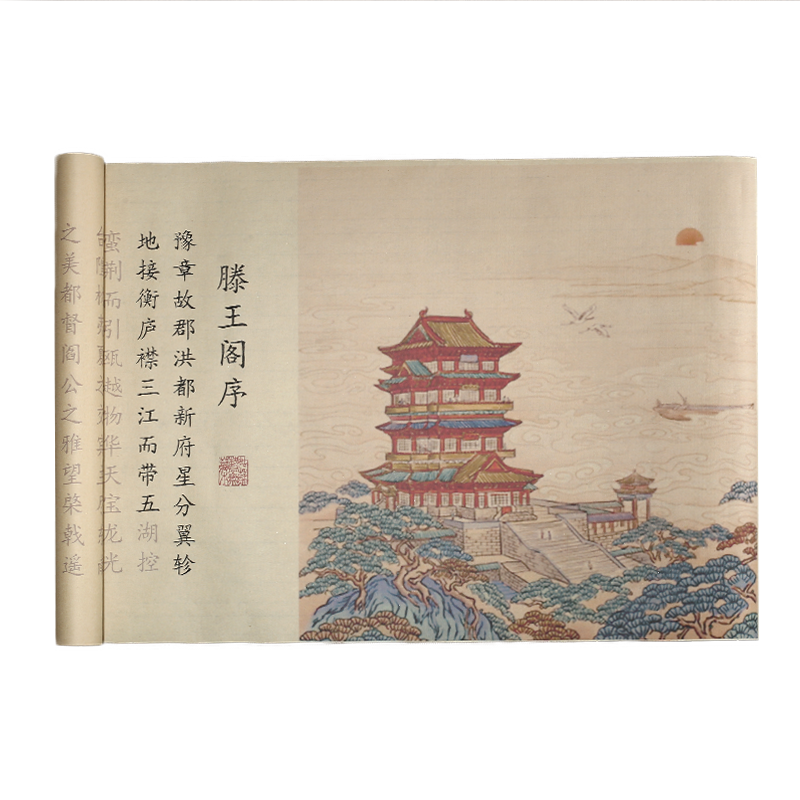 滕王阁序
豫章故郡洪都新府星分翼轸
地接衡庐襟三江而带五湖控
蛮荆而引瓯越物华天宝龙光
之美都督阎公之雅望棨戟遥